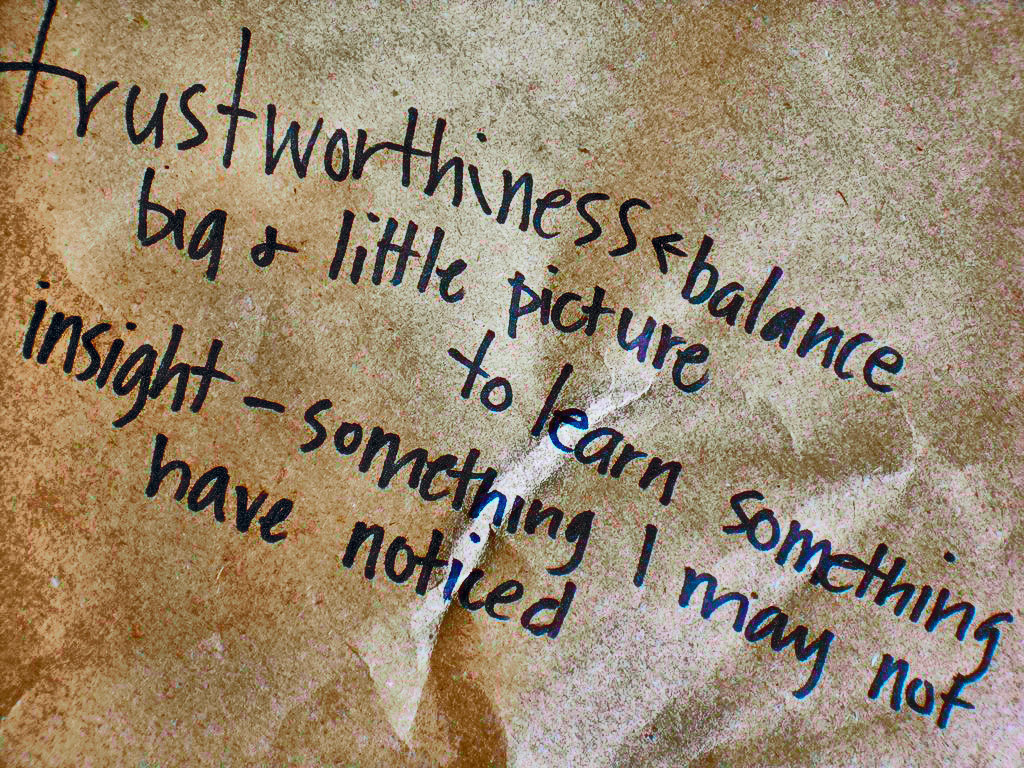 trustworthiness ← balance
big & little picture
to learn something
insight - something I may not
have noticed